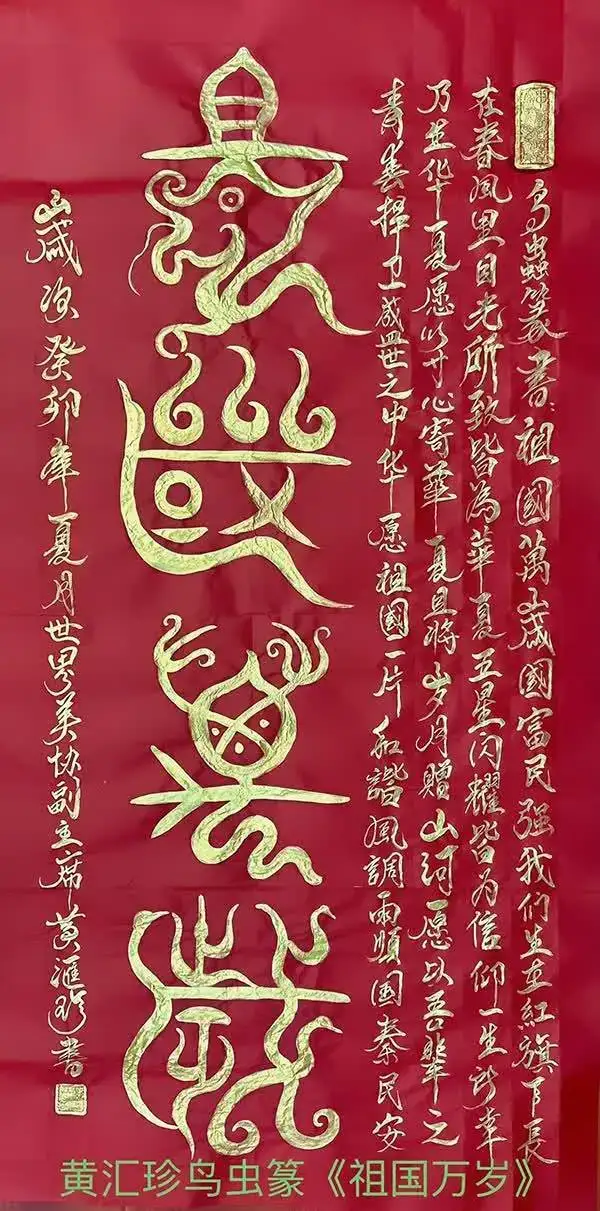 鸟蟲篆書：祖國萬歲國富民强我们生在紅旗下長
在春风里目光所致皆為華夏五星闪耀皆为信仰一生所幸
乃生华夏愿以寸心寄華夏且将岁月贈山河愿以吾辈之
青春捍卫盛世之中华愿祖國一片和諧風調雨順国泰民安
祖國萬歲
歲次癸卯年夏月世界美协副主席黄滙珍書
黄汇珍鸟虫篆《祖国万岁》